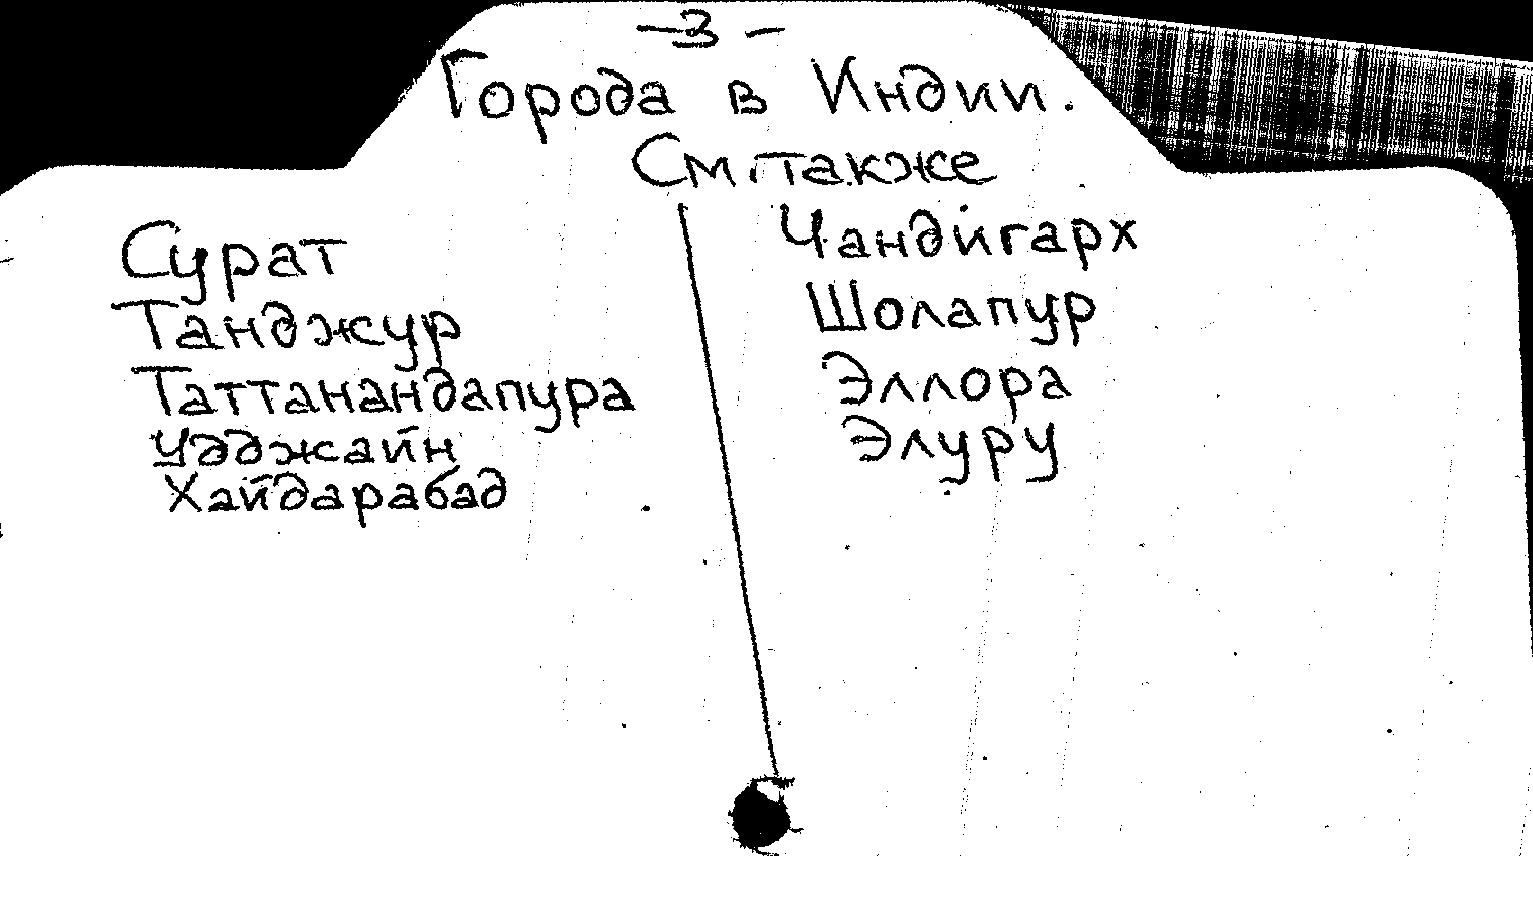 -3-
Города в Индии.
См. также
Сурат
Танджур
Таттанандапура
Удджайн
Хайдарабад
Чандигарх
Шолапур
Эллора
Элуру